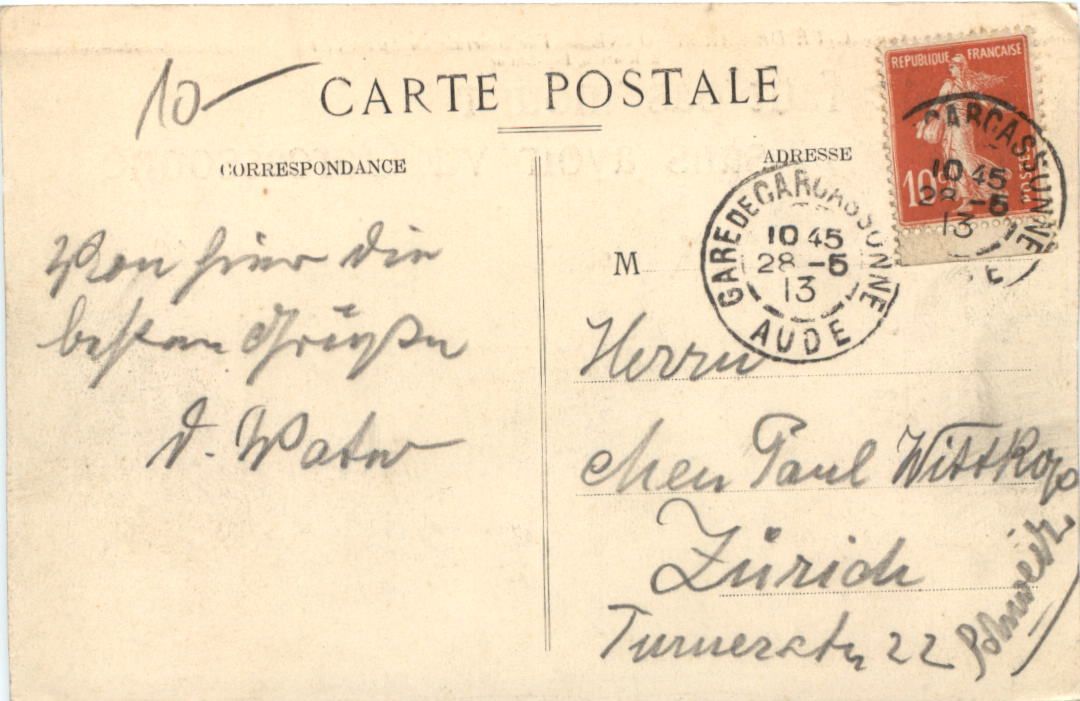 10
CARTE POSTALE
CORRESPONDANCE
ADRESSE
REPUBLIQUE FRANÇAISE
10c
POSTES
CARCASSONNE
10 45
28 -5
13
GARE DE CARCASSONNE
10 45
28 -5
13
AUDE
M
Von hier die
besten Grüße
d. Vater
Herrn
Paul Wittkop
Zürich
Turnerstr 22
Schweiz